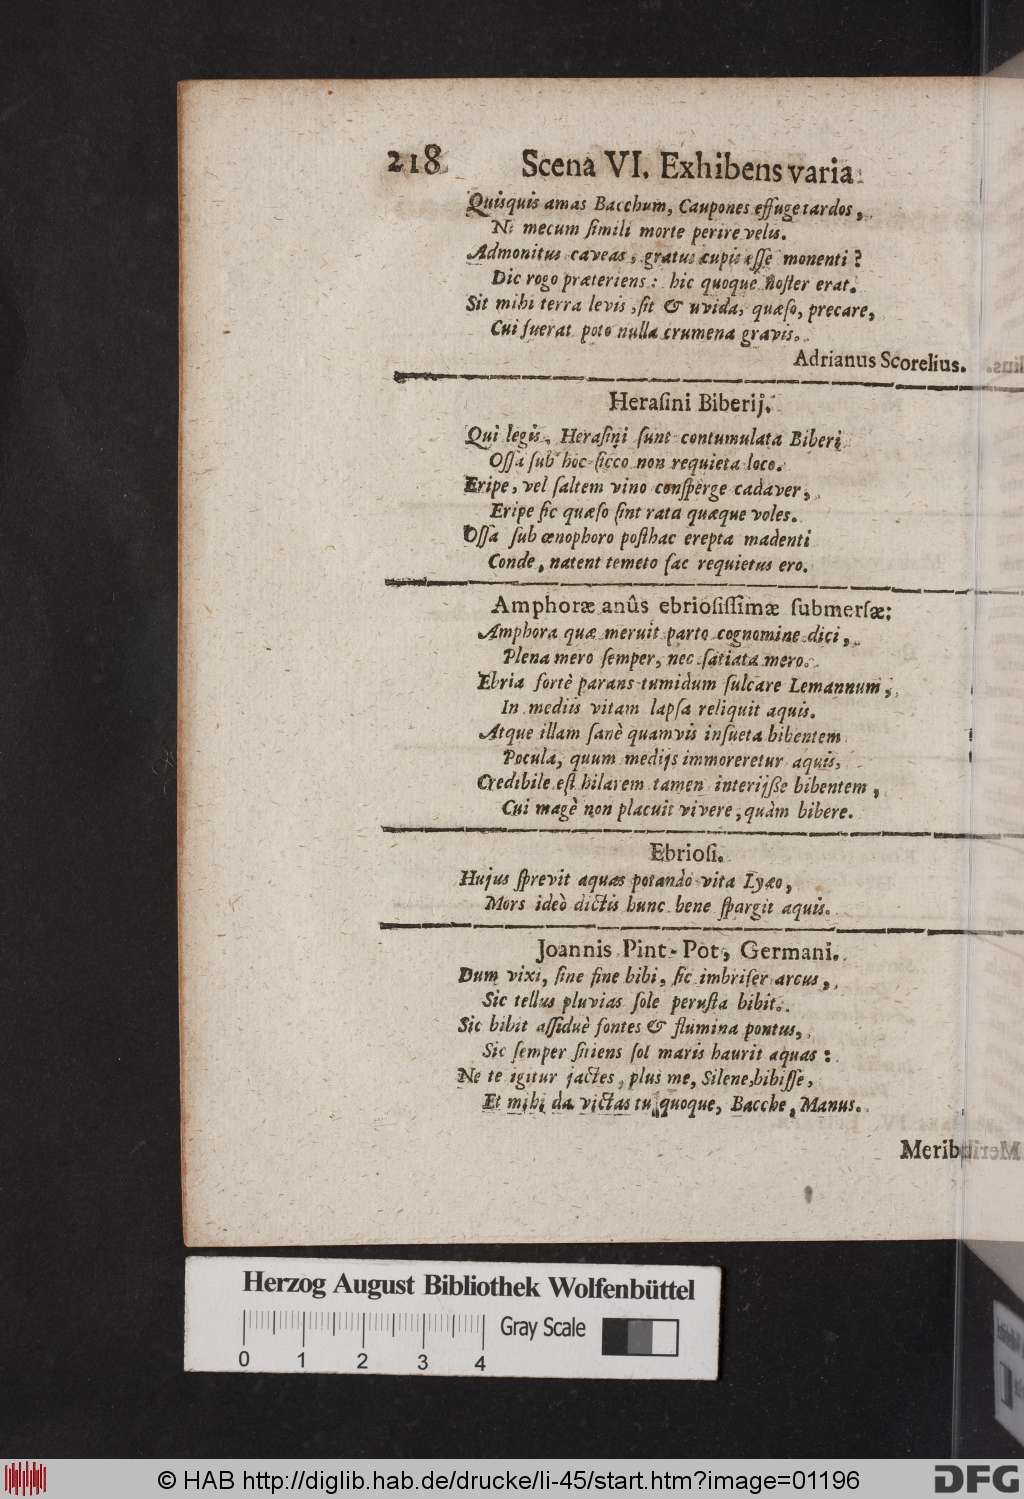 218 Scena VI. Exhibens varia
Quisquis amas Bacchum, Caupones effuge tardos,
Ni mecum ſimili morte perire velis.
Admonitus caveas, gratus cupis eſſe monenti?
Dic rogo præteriens: hic quoque noſter erat.
Sit mihi terra levis, ſit & uvida, quæſo, precare,
Cui fuerat poto nulla crumena gravis.
Adrianus Scorelius.
Heraſini Biberij.
Qui legis, Heraſini ſunt contumulata Biberi
Oſſa ſub hoc ſicco non requieta loco.
Eripe, vel ſaltem vino conſperge cadaver,
Eripe ſic quæſo ſint rata quæque voles.
Oſſa ſub œnophoro poſthac erepta madenti
Conde, natent temeto fac requietus ero.
Amphoræ anûs ebrioſiſſimæ ſubmerſæ:
Amphora quæ meruit parto cognomine dici,
Plena mero ſemper, nec ſatiata mero.
Ebria fortè parans tumidum ſulcare Lemannum,
In mediis vitam lapſa reliquit aquis.
Atque illam ſanè quamvis inſueta bibentem
Pocula, quum medijs immoreretur aquis,
Credibile eſt hilarem tamen interijſſe bibentem,
Cui magè non placuit vivere, quàm bibere.
Ebrioſi.
Hujus ſprevit aquas potando vita Lyæo,
Mors ideò dictis hunc bene ſpargit aquis.
Joannis Pint-Pot, Germani.
Dum vixi, ſine fine bibi, ſic imbrifer arcus,
Sic tellus pluvias ſole peruſta bibit.
Sic bibit aſſiduè fontes & flumina pontus,
Sic ſemper ſitiens ſol maris haurit aquas:
Ne te igitur jactes, plus me, Silene, bibiſſe,
Et mihi da victas tu quoque, Bacche, Manus.
Meribu
Herzog August Bibliothek Wolfenbüttel
Gray Scale
0 1 2 3 4
© HAB http://diglib.hab.de/drucke/li-45/start.htm?image=01196
DFG